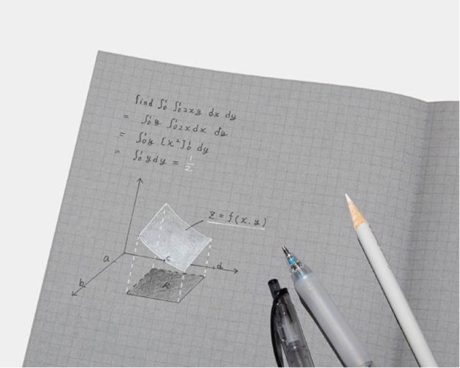 find ∫₀¹ ∫₀¹ 2xy dx dy
= ∫₀¹y ∫₀¹2xdx dy
= ∫₀¹y [x²]₀¹ dy
= ∫₀¹ydy = 1/2
z = f(x,y)
a
c
d
b
R